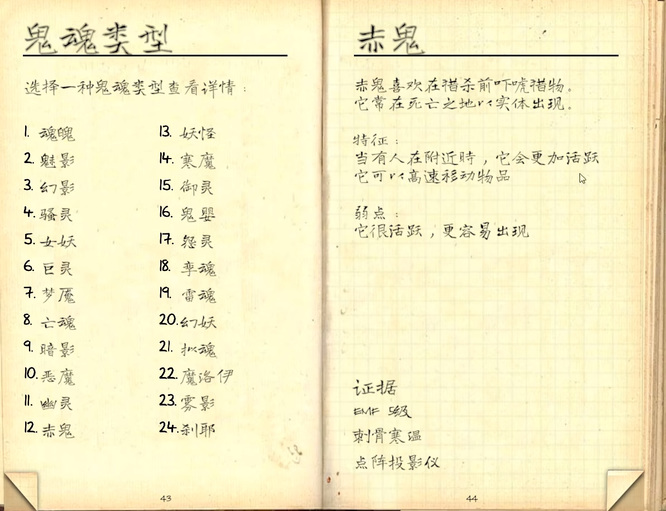 鬼魂类型
选择一种鬼魂类型查看详情：
1. 魂魄
2. 魅影
3. 幻影
4. 骚灵
5. 女妖
6. 巨灵
7. 梦魇
8. 亡魂
9. 暗影
10. 恶魔
11. 幽灵
12. 赤鬼
13. 妖怪
14. 寒魔
15. 御灵
16. 鬼婴
17. 怨灵
18. 孪魂
19. 雷魂
20. 幻妖
21. 拟魂
22. 魔洛伊
23. 雾影
24. 刹耶
43
赤鬼
赤鬼喜欢在猎杀前吓唬猎物。
它常在死亡之地以实体出现。
特征：
当有人在附近時，它会更加活跃
它可以高速移动物品
弱点：
它很活跃，更容易出现
证据
EMF 5级
刺骨寒温
点阵投影仪
44